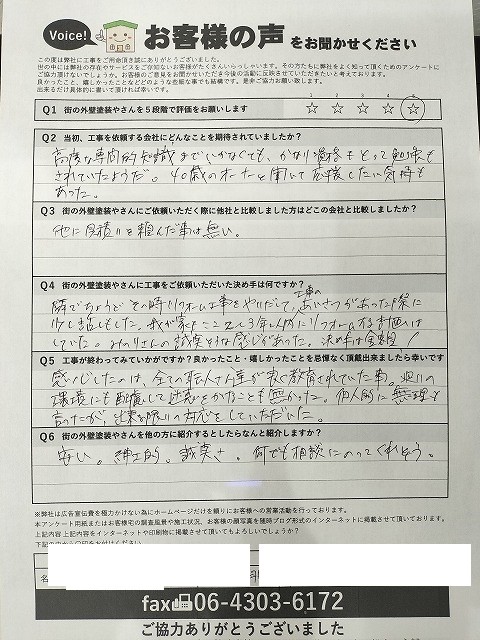 Voice!
お客様の声 をお聞かせください
この度は弊社に工事をご用命頂き誠にありがとうございました。
世の中には弊社の存在やサービスをご存知ないお客様がたくさんいらっしゃいます。その方たちに弊社をよく知って頂くためのアンケートに
ご協力頂けないでしょうか。お客様のご意見をお聞かせいただき今後の活動に反映させていきたいと考えております。
良かったこと、嬉しかったことなどのような些細な事でも結構です。是非ご協力お願い致します。
出来るだけ具体的に書いて頂ければ幸いです。
Q1 街の外壁塗装やさんを5段階で評価をお願いします
1 2 3 4 5
☆ ☆ ☆ ☆ ☆
Q2 当初、工事を依頼する会社にどんなことを期待されていましたか?
高度な専門的知識までいかなくても、かなり資格をとって勉強も
されていたようだ。40歳のオーナーと聞いて応援したい気持も
あった。
Q3 街の外壁塗装やさんにご依頼いただく際に他社と比較しました方はどこの会社と比較しましたか?
他に見積りを頼んだ事は無い。
Q4 街の外壁塗装やさんに工事をご依頼いただいた決め手は何ですか?
隣でちょうどその時リフォーム工事をやっていて、工事のあいさつがあった際に
少し話もした。我が家もここ2〜3年以内にリフォームする計画は
していた。 誠実そうな感じがあった。決め手は金額!
Q5 工事が終わってみていかがですか?良かったこと・嬉しかったことを忌憚なく頂戴出来ましたら幸いです
感心したのは、全ての職人さん達が良く教育されていた事。周りの
環境にも配慮して迷惑をかなことも無かった。個人的に無理も
言ったが、出来る限りの対応をしていただいた。
Q6 街の外壁塗装やさんを他の方に紹介するとしたらなんと紹介しますか?
安い。紳士的。誠実さ。何でも相談にのってくれそう。
※弊社は広告宣伝費を極力かけない為にホームページだけを頼りにお客様への営業活動を行っております。
本アンケート用紙またはお客様宅の調査風景や施工状況、お客様の顔写真を随時ブログ形式のインターネットに掲載させて頂いております。
上記内容上記内容をインターネットや印刷物に掲載させて頂いてもよろしいでしょうか?
fax 06-4303-6172
ご協力ありがとうございました